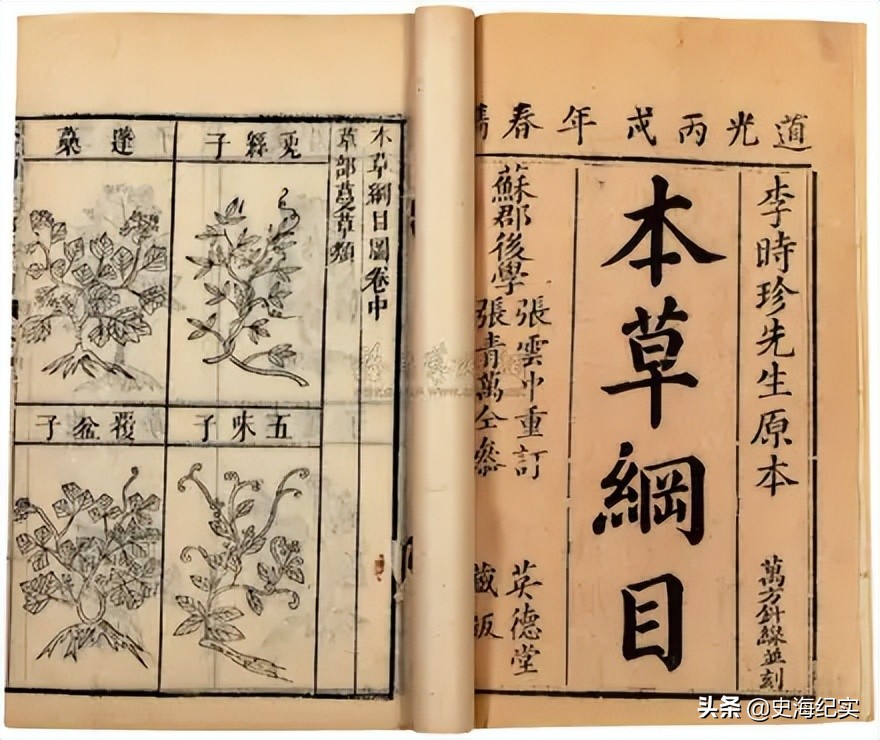 道光丙戌年春鐫
李時珍先生原本
萬方針線並刻
本草綱目
蘇郡後學
張雲中重訂
張青萬仝參
英德堂
藏板
本草綱目圖卷中
草部蔓草類
兎絲子
蓬蘽
五味子
覆盆子
头条 @史海纪实